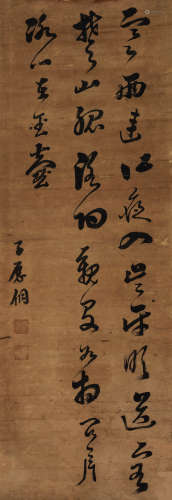 寒雨連江夜入吳平明送客
楚山孤洛陽親友如相問一片
冰心在玉壺
應